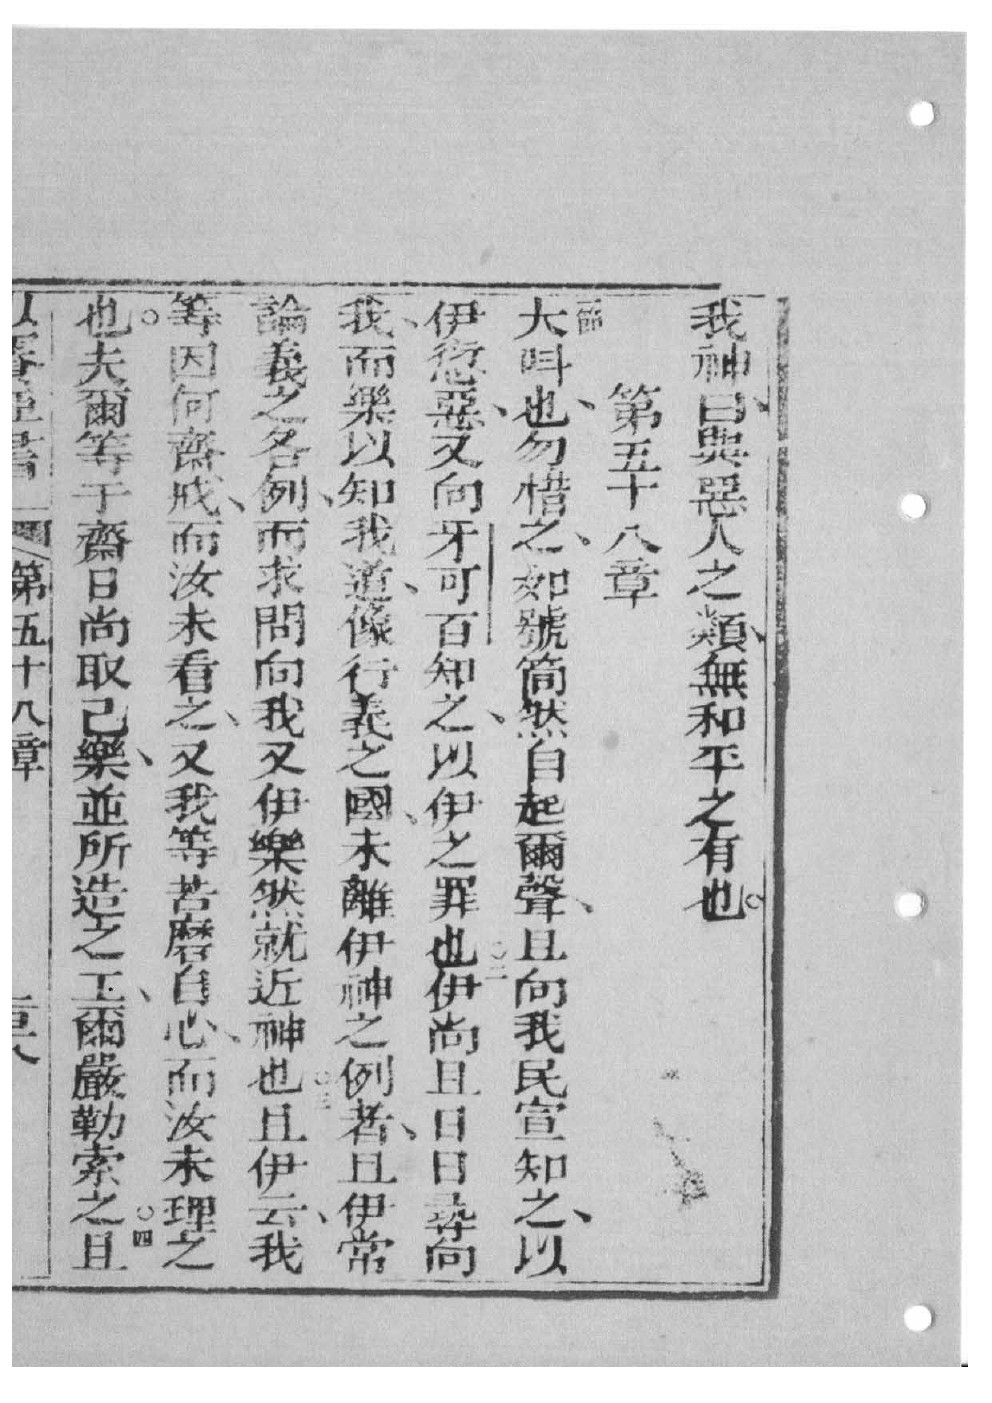 我神曰與惡人之類、無和平之有也。
第五十八章
一節大呌也、勿惜之、如號筒然自起爾聲、且向我民宣知之、以
伊愆惡、又向牙可百知之、以伊之罪也○二伊尚且日日尋向
我、而樂以知我道、像行義之國、未離伊神之例者、且伊常
論義之各例、而求問向我又伊樂然就近神也○三且伊云、我
等因何齋戒、而汝未看之、又我等苦磨自心、而汝未理之
也。夫爾等于齋日尚取己樂、並所造之工、爾嚴勒索之○四且
以賽亞書 第五十八章